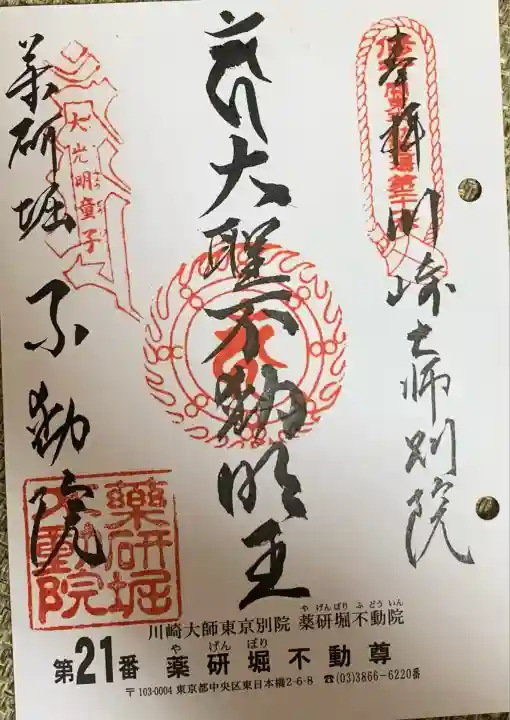 奉拝 川崎大師別院
大聖不動明王
大光明童子
薬研堀 不動院
薬研堀
不動院
川崎大師東京別院 薬研堀不動院
やげんぼり ふどういん
第21番 薬研堀不動尊
やげんぼり
〒103-0004 東京都中央区東日本橋2-6-8 ☎(03)3866-6220番